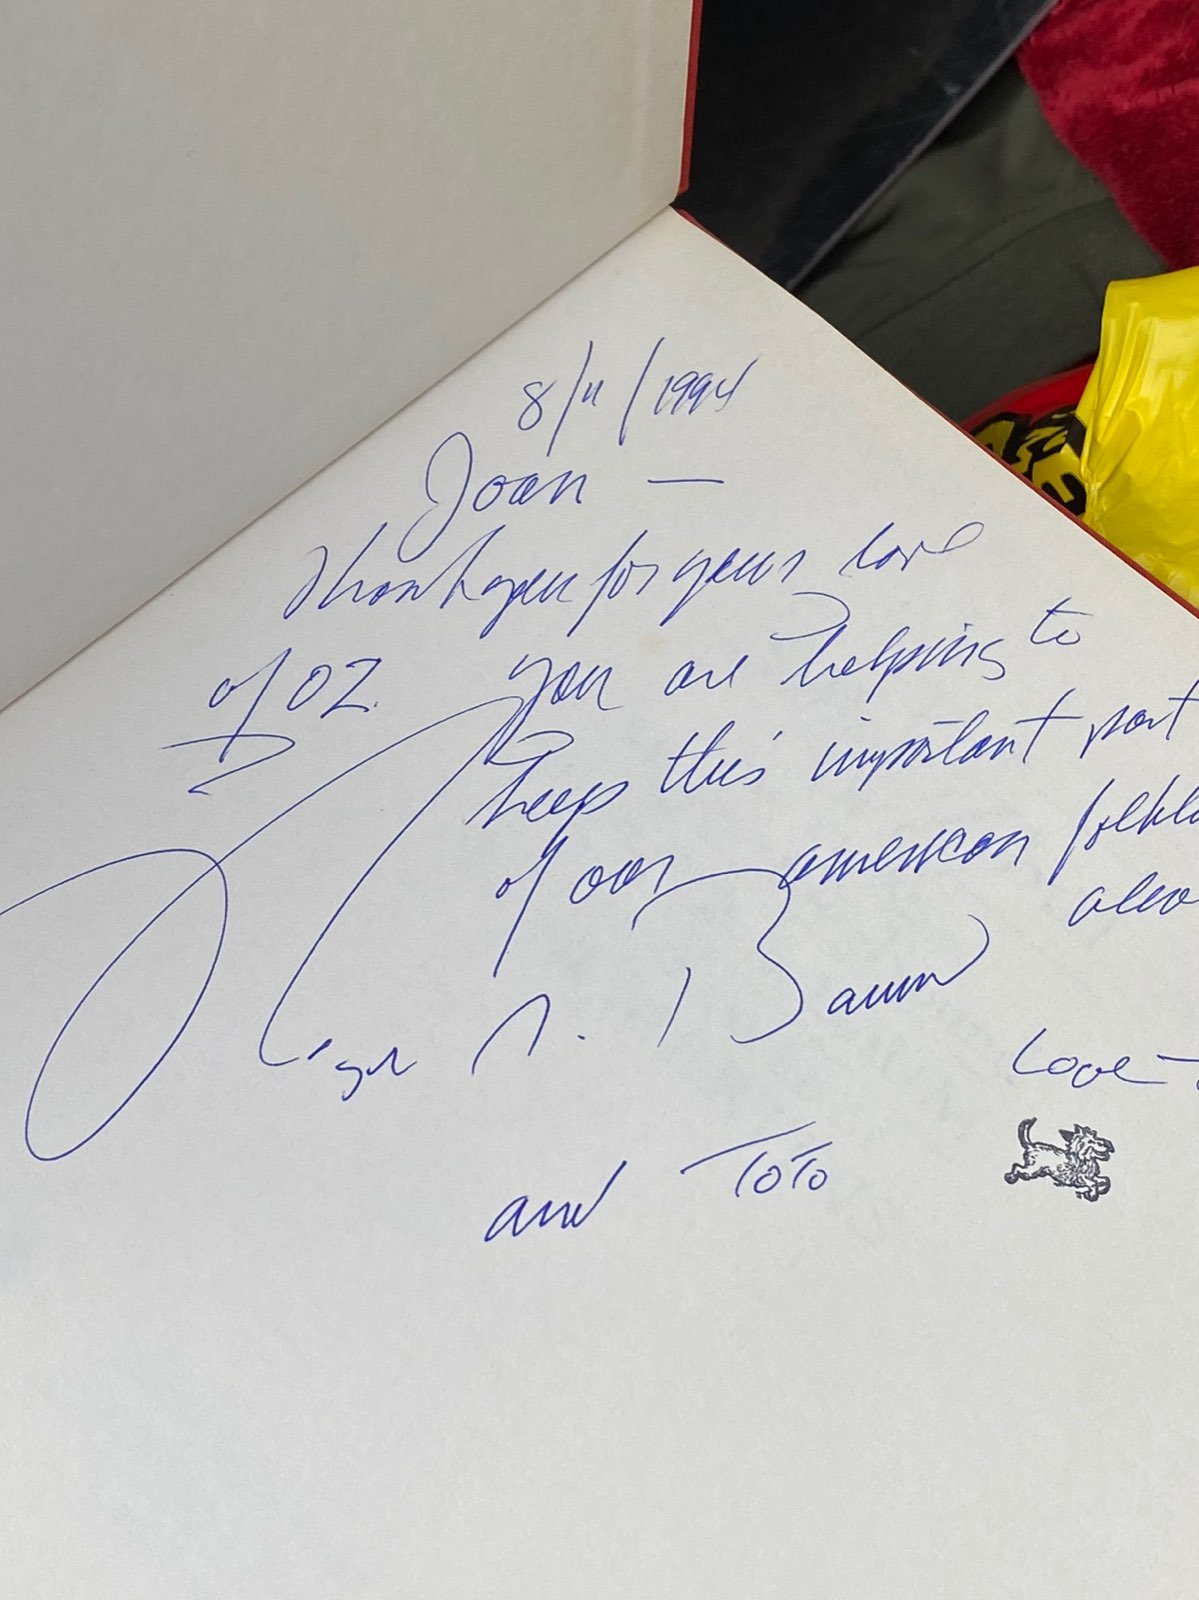 8/11/1994
Joan —
Thank you for your love
of OZ. You are helping to
keep this important part
of our American folklo
aliv
Roger S. Baum
Love —
and TOTO